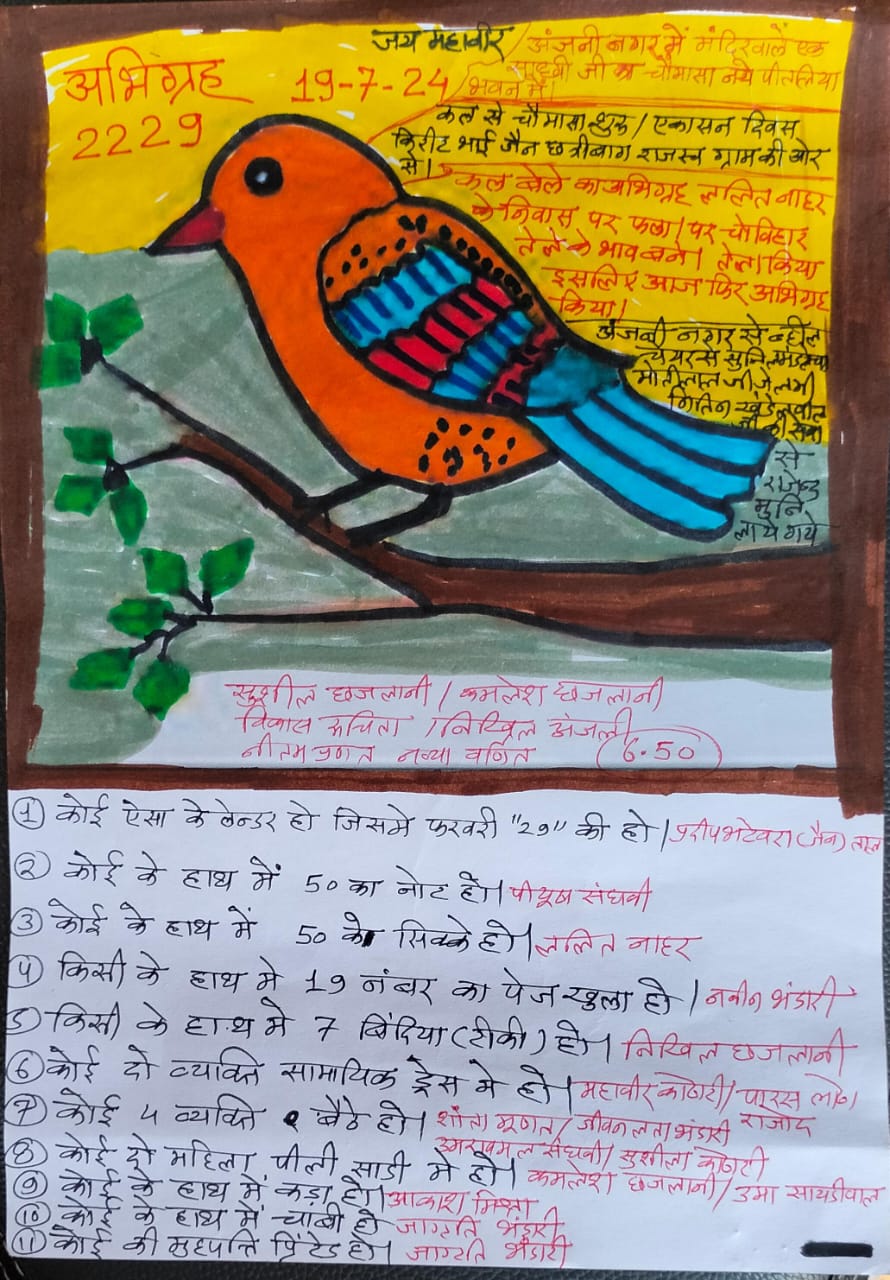 जय महावीर
अभिग्रह
2229
19-7-24
अंजनी नगर में मंदिरवाले एक
साध्वी जी का चौमासा नये पीतलिया
भवन में।
कल से चौमासा शुरू / एकासन दिवस
किरीट भाई जैन छत्रीबाग राजस्व ग्राम की ओर
से।
कल बेले का अभिग्रह ललित नाहर
के निवास पर फला। पर चोविहार
तेले के भाव बने। तेला किया
इसलिए आज फिर अभिग्रह
किया।
अंजनी नगर से व्हील
चेयर से सुनिल
मोतीलाल जी
नितिन खंडेलवाल
जी की सेवा
से
राजेन्द्र
मुनि
लाये गये
सुशील छजलानी / कमलेश छजलानी
विकास रुचिता / निखिल अंजली
नव्या
6.50
① कोई ऐसा केलेन्डर हो जिसमे फरवरी "29" की हो। प्रदीप भटेवरा (जैन)
② कोई के हाथ में 50 का नोट हो। पीयूष संघवी
③ कोई के हाथ में 50 के सिक्के हो। ललित नाहर
④ किसी के हाथ मे 19 नंबर का पेज खुला हो। नवीन भंडारी
⑤ किसी के हाथ मे 7 बिंदिया (टीकी) हो। निखिल छजलानी
⑥ कोई दो व्यक्ति सामायिक ड्रेस मे हो। महावीर कोठारी / पारस लोढा
⑦ कोई 4 व्यक्ति बैठे हो। शांता भूगत / जीवन लता भंडारी राजोद
उमरावमल संघवी / सुशीला कोठारी
⑧ कोई दो महिला पीली साडी मे हो। कमलेश छजलानी / उमा सायडीवाल
⑨ कोई के हाथ में कड़ा हो। आकाश मिश्रा
⑩ कोई के हाथ में चाबी हो जागृति भंडारी
⑪ कोई की मुहपत्ति प्रिंटेड हो। जागृति भंडारी